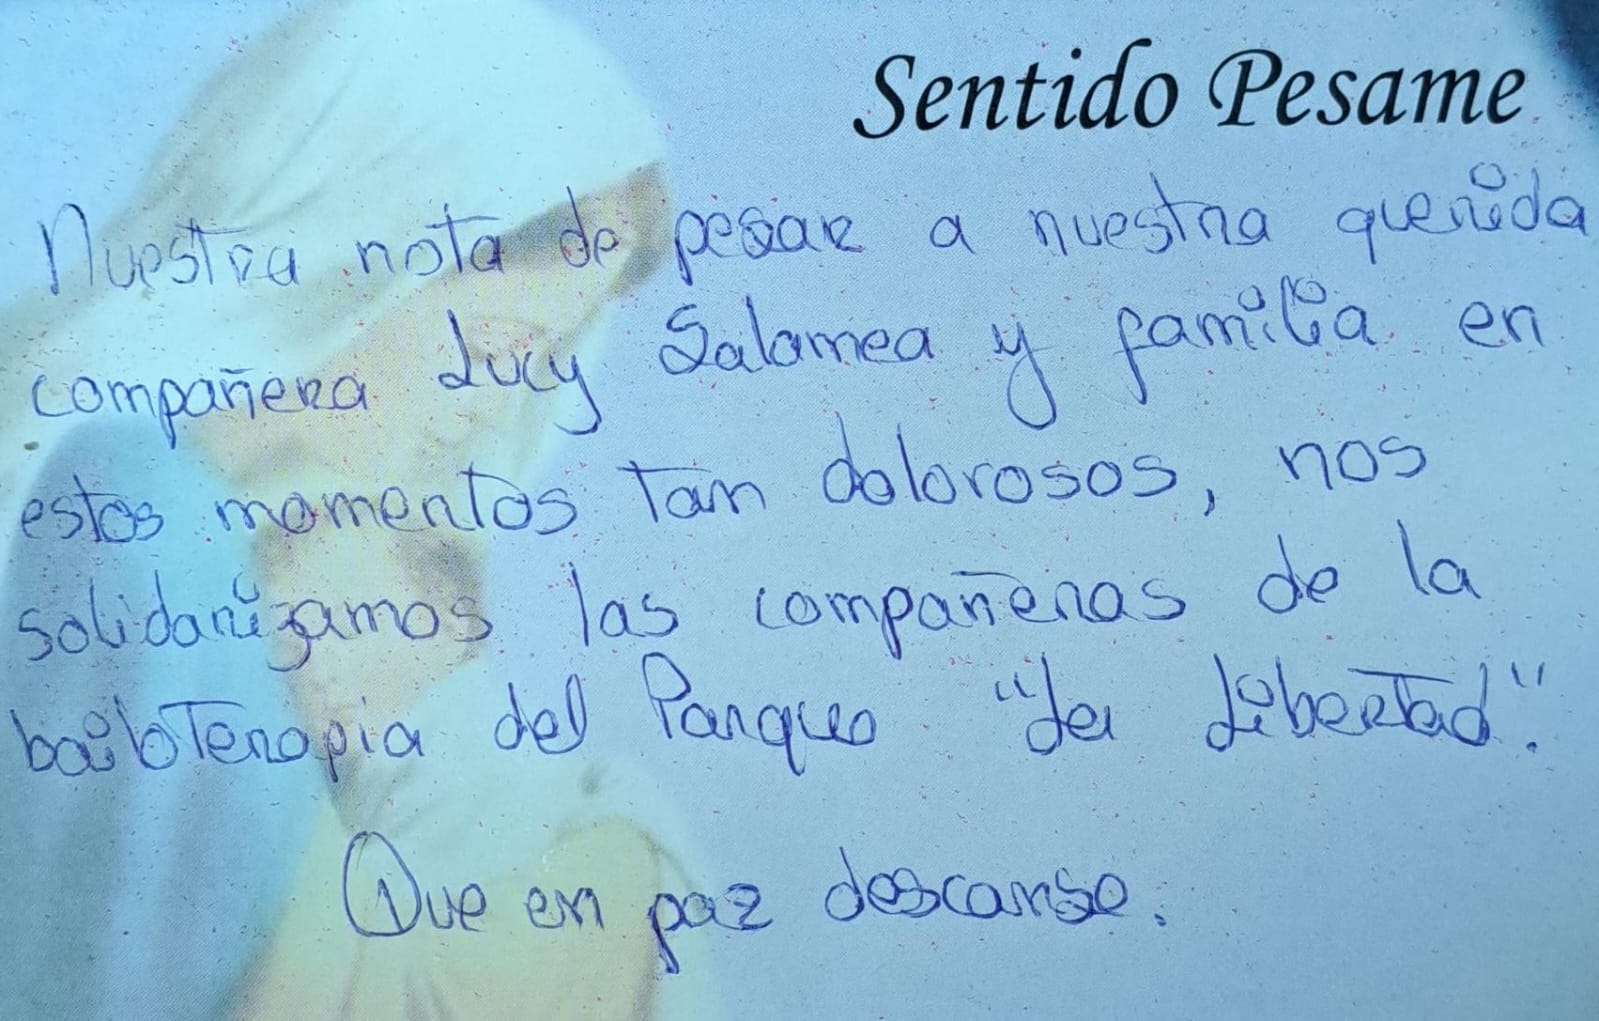 Sentido Pesame
Nuestra nota de pesar a nuestra querida
compañera Lucy Salamea y familia en
estos momentos tan dolorosos, nos
solidarizamos las compañeras de la
bailoterapia del Parque "La Libertad".
Que en paz descanse.